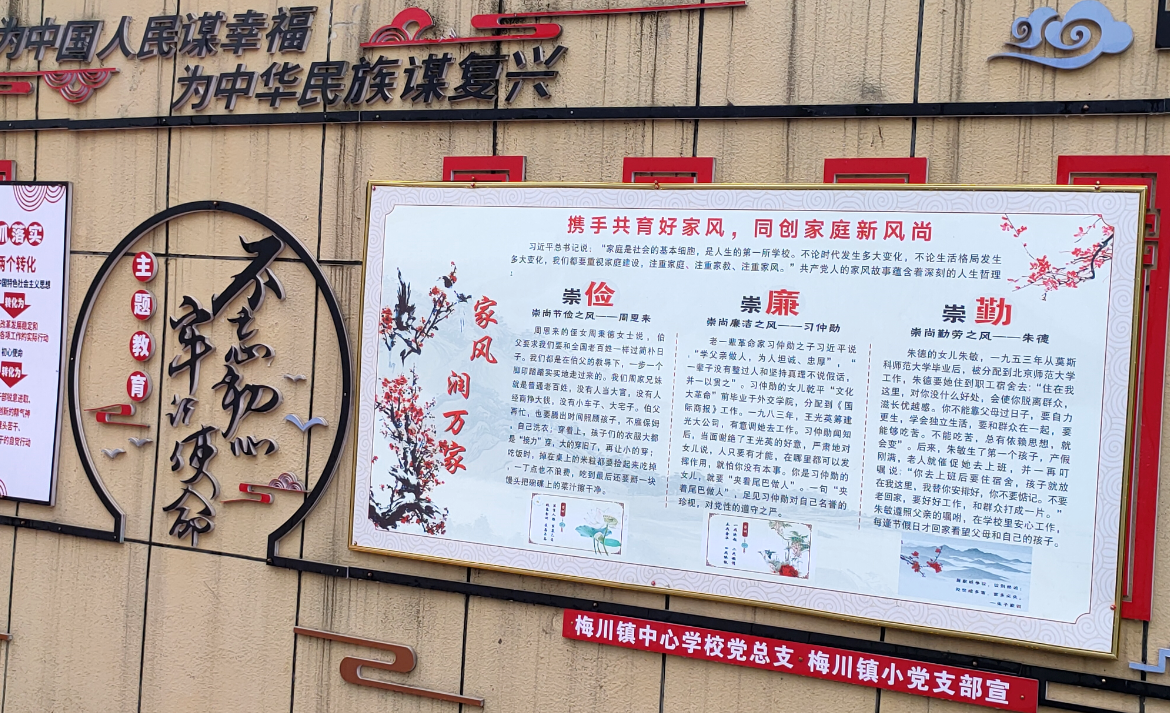 为中国人民谋幸福
为中华民族谋复兴
抓落实
两个转化
中国特色社会主义思想
转化为
改革发展稳定和
各项工作的实际行动
初心使命
转化为
干部锐意进取、
创新的精气神
埋头苦干、
干的自觉行动
主题教育
不忘初心
牢记使命
携手共育好家风，同创家庭新风尚
习近平总书记说：“家庭是社会的基本细胞，是人生的第一所学校。不论时代发生多大变化，不论生活格局发生
多大变化，我们都要重视家庭建设，注重家庭、注重家教、注重家风。”共产党人的家风故事蕴含着深刻的人生哲理
：
家风润万家
崇俭
崇尚节俭之风——周恩来
周恩来的侄女周秉德女士说，伯
父要求我们要和全国老百姓一样过简朴日
子。我们都是在伯父的教导下，一步一个
脚印踏踏实实地走过来的。我们周家兄妹
就是普通老百姓，没有人当大官，没有人
经商挣大钱，没有小车子、大宅子。伯父
再忙，也要腾出时间照顾孩子，不雇保姆
，自己洗衣；穿着上，孩子们的衣服大都
是“接力”穿，大的穿旧了，再让小的穿；
吃饭时，掉在桌上的米粒都要捡起来吃掉
，一丁点也不浪费，吃到最后还要掰一块
馒头把碗碟上的菜汁擦干净。
崇廉
崇尚廉洁之风——习仲勋
老一辈革命家习仲勋之子习近平说
，“学父亲做人，为人坦诚、忠厚”，“
一辈子没有整过人和坚持真理不说假话，
并一以贯之”。习仲勋的女儿乾平“文化
大革命”前毕业于外交学院，分配到《国
际商报》工作。一九八三年，王光英筹建
光大公司，有意调她去工作。习仲勋闻知
后，当面谢绝了王光英的好意，严肃地对
女儿说，人只要有才能，在哪里都可以发
挥作用，就怕你没有本事。你是习仲勋的
女儿，就要“夹着尾巴做人”。一句“夹
着尾巴做人”，足见习仲勋对自己名誉的
珍视，对党性的遵守之严。
崇勤
崇尚勤劳之风——朱德
朱德的女儿朱敏，一九五三年从莫斯
科师范大学毕业后，被分配到北京师范大学
工作，朱德要她住到职工宿舍去：“住在我
这里，对你没什么好处，会使你脱离群众，
滋长优越感。你不能靠父母过日子，要自力
更生，学会独立生活，要和群众在一起，要
能够吃苦。不能吃苦，总有依赖思想，就
会变”。后来，朱敏生了第一个孩子，产假
刚满，老人就催促她去上班，并一再叮
嘱说：“你去上班后要住宿舍，孩子就放
在我这里，我替你安排好，你不要惦记。不要
老回家，要好好工作，和群众打成一片。”
朱敏遵照父亲的嘱咐，在学校里安心工作，
每逢节假日才回家看望父母和自己的孩子。
梅川镇中心学校党总支 梅川镇小党支部宣